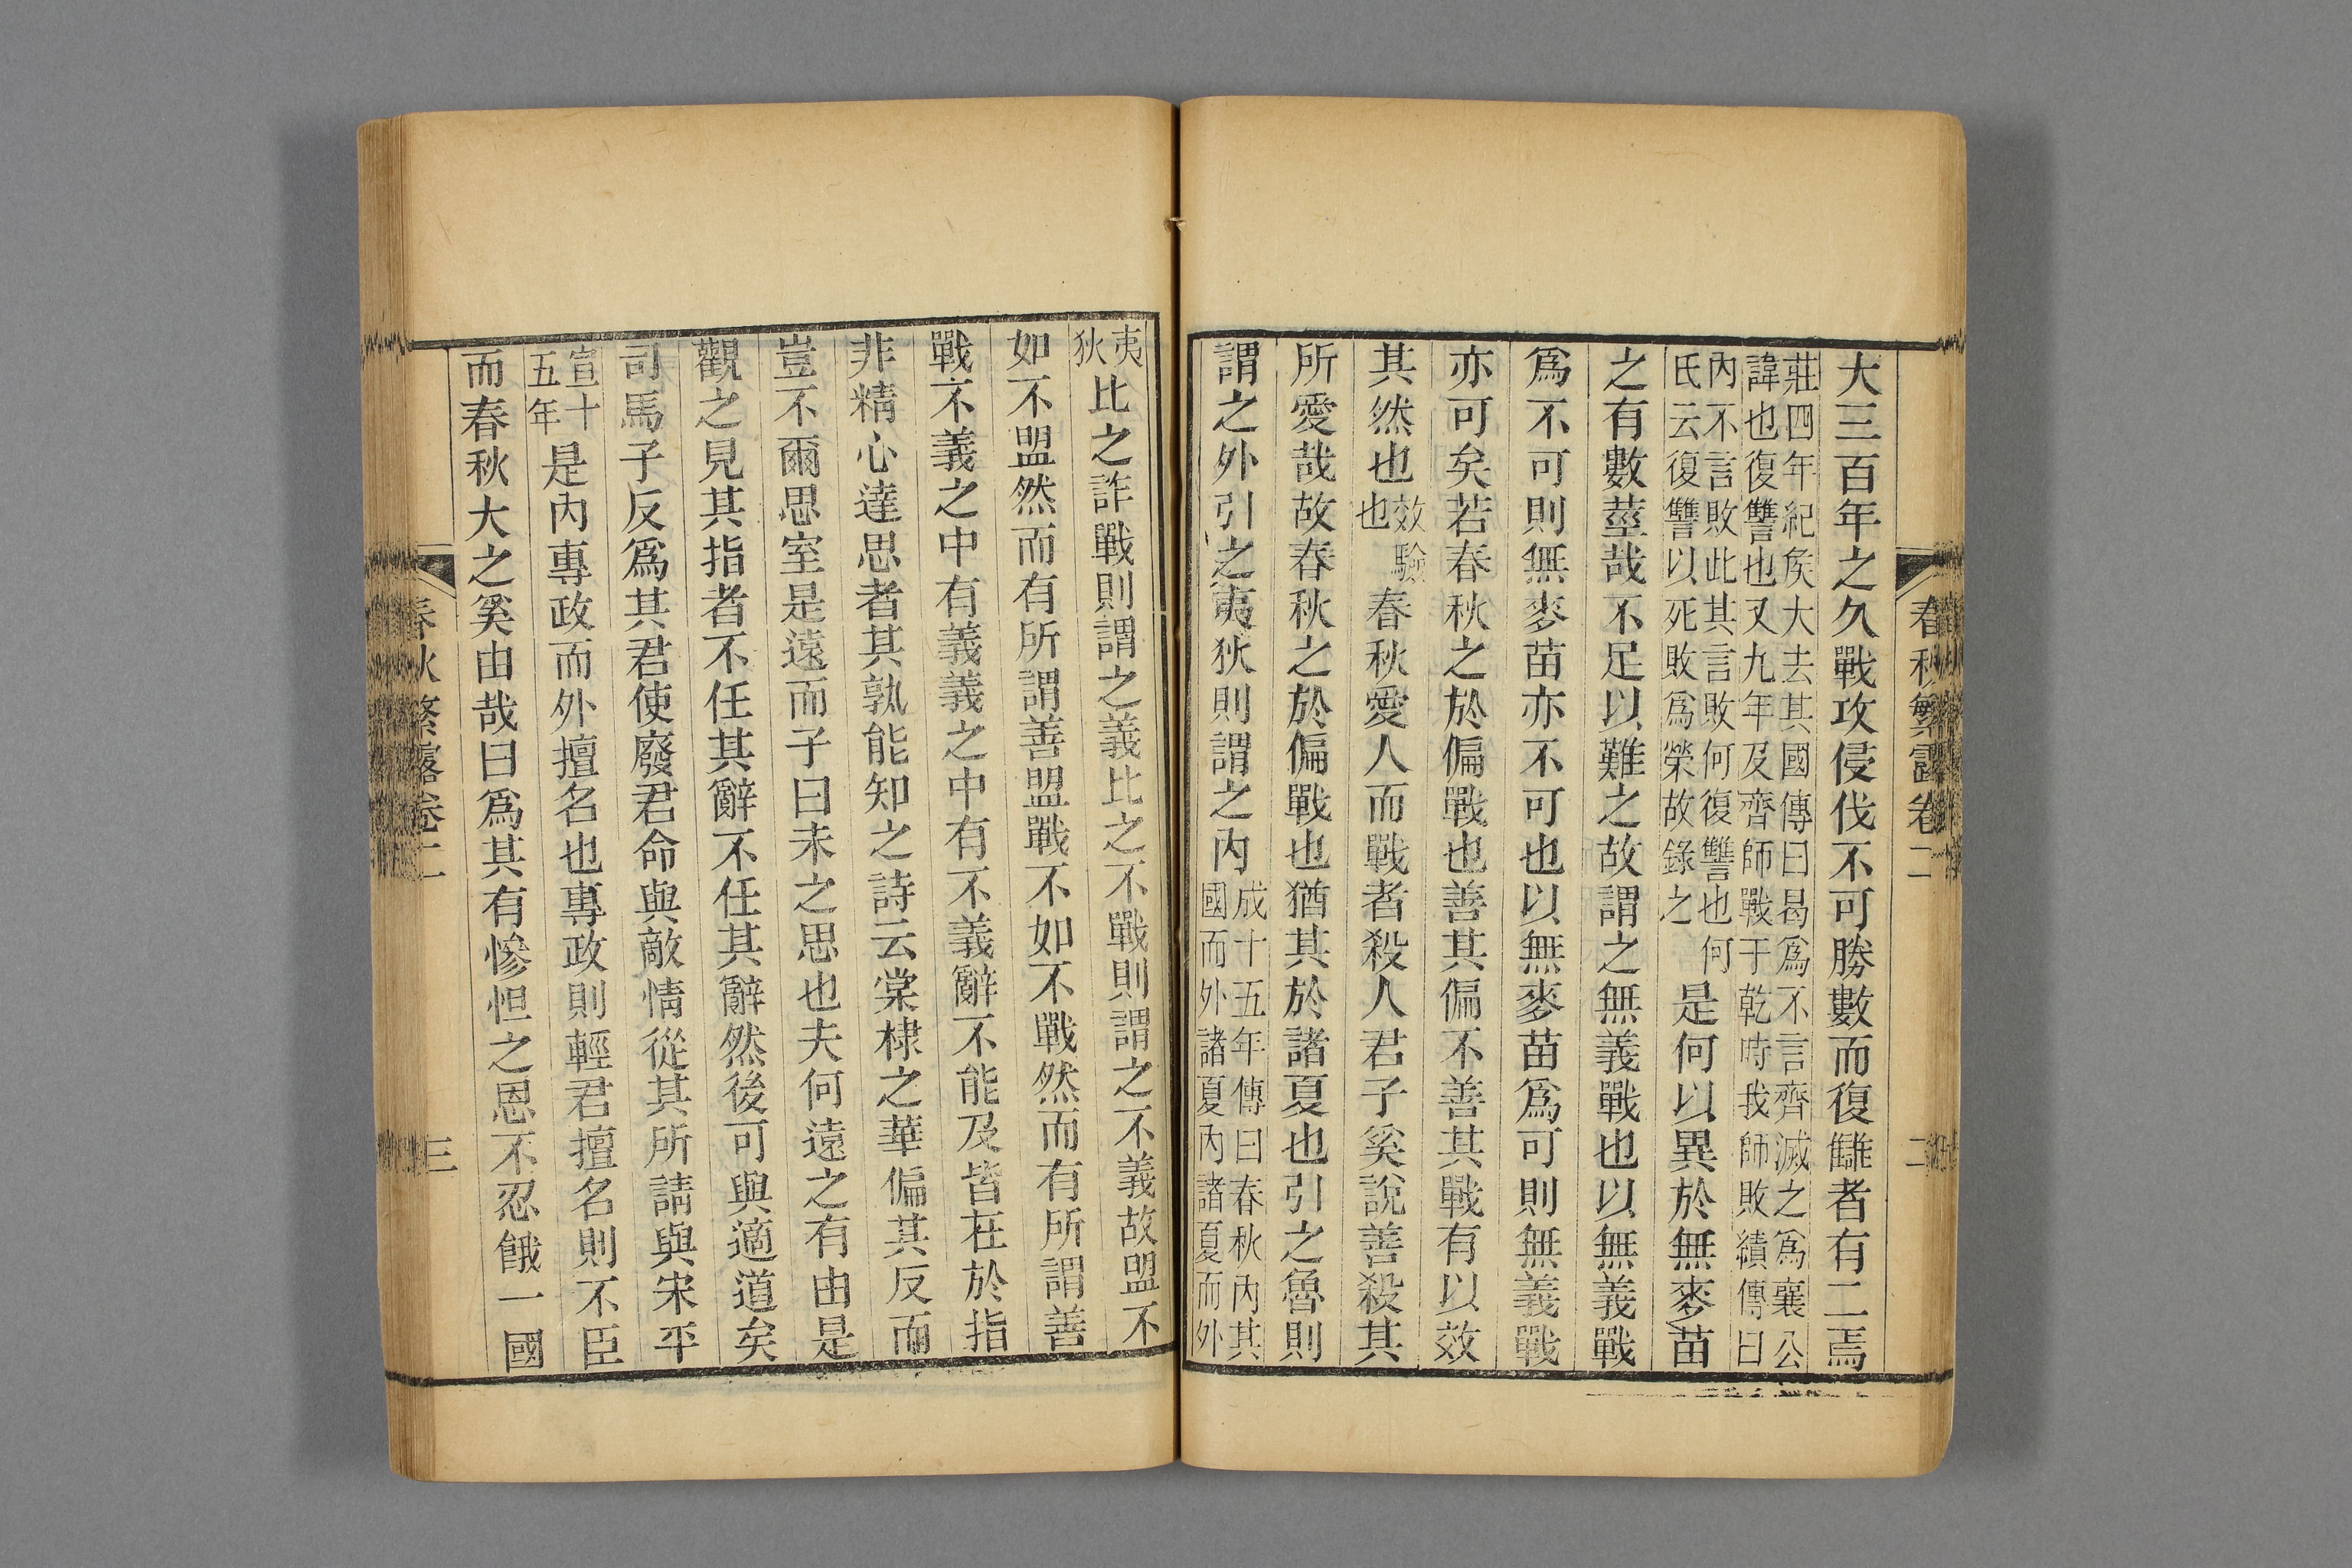 春秋繁露卷二
二
大三百年之久戰攻侵伐不可勝數而復讎者有二焉
莊四年紀矦大去其國傳曰曷爲不言齊滅之爲襄公
諱也復讐也又九年及齊師戰于乾時我師敗績傳曰
內不言敗此其言敗何復讐也何
氏云復讐以死敗爲榮故錄之
是何以異於無麥苗
之有數莖哉不足以難之故謂之無義戰也以無義戰
爲不可則無麥苗亦不可也以無麥苗爲可則無義戰
亦可矣若春秋之於偏戰也善其偏不善其戰有以效
其然也
效驗
也
春秋愛人而戰者殺人君子奚說善殺其
所愛哉故春秋之於偏戰也猶其於諸夏也引之魯則
謂之外引之夷狄則謂之內
成十五年傳曰春秋內其
國而外諸夏內諸夏而外
夷
狄
比之詐戰則謂之義比之不戰則謂之不義故盟不
如不盟然而有所謂善盟戰不如不戰然而有所謂善
戰不義之中有義義之中有不義辭不能及皆在於指
非精心達思者其孰能知之詩云棠棣之華偏其反而
豈不爾思室是遠而子曰未之思也夫何遠之有由是
觀之見其指者不任其辭不任其辭然後可與適道矣
司馬子反爲其君使廢君命與敵情從其所請與宋平
宣十
五年
是內專政而外擅名也專政則輕君擅名則不臣
而春秋大之奚由哉曰爲其有慘怛之恩不忍餓一國
春秋繁露卷二
三